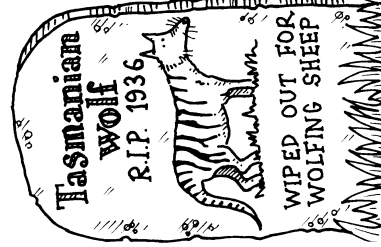 Tasmanian
wolf
R.I.P. 1936
WIPED OUT FOR
WOLFING SHEEP